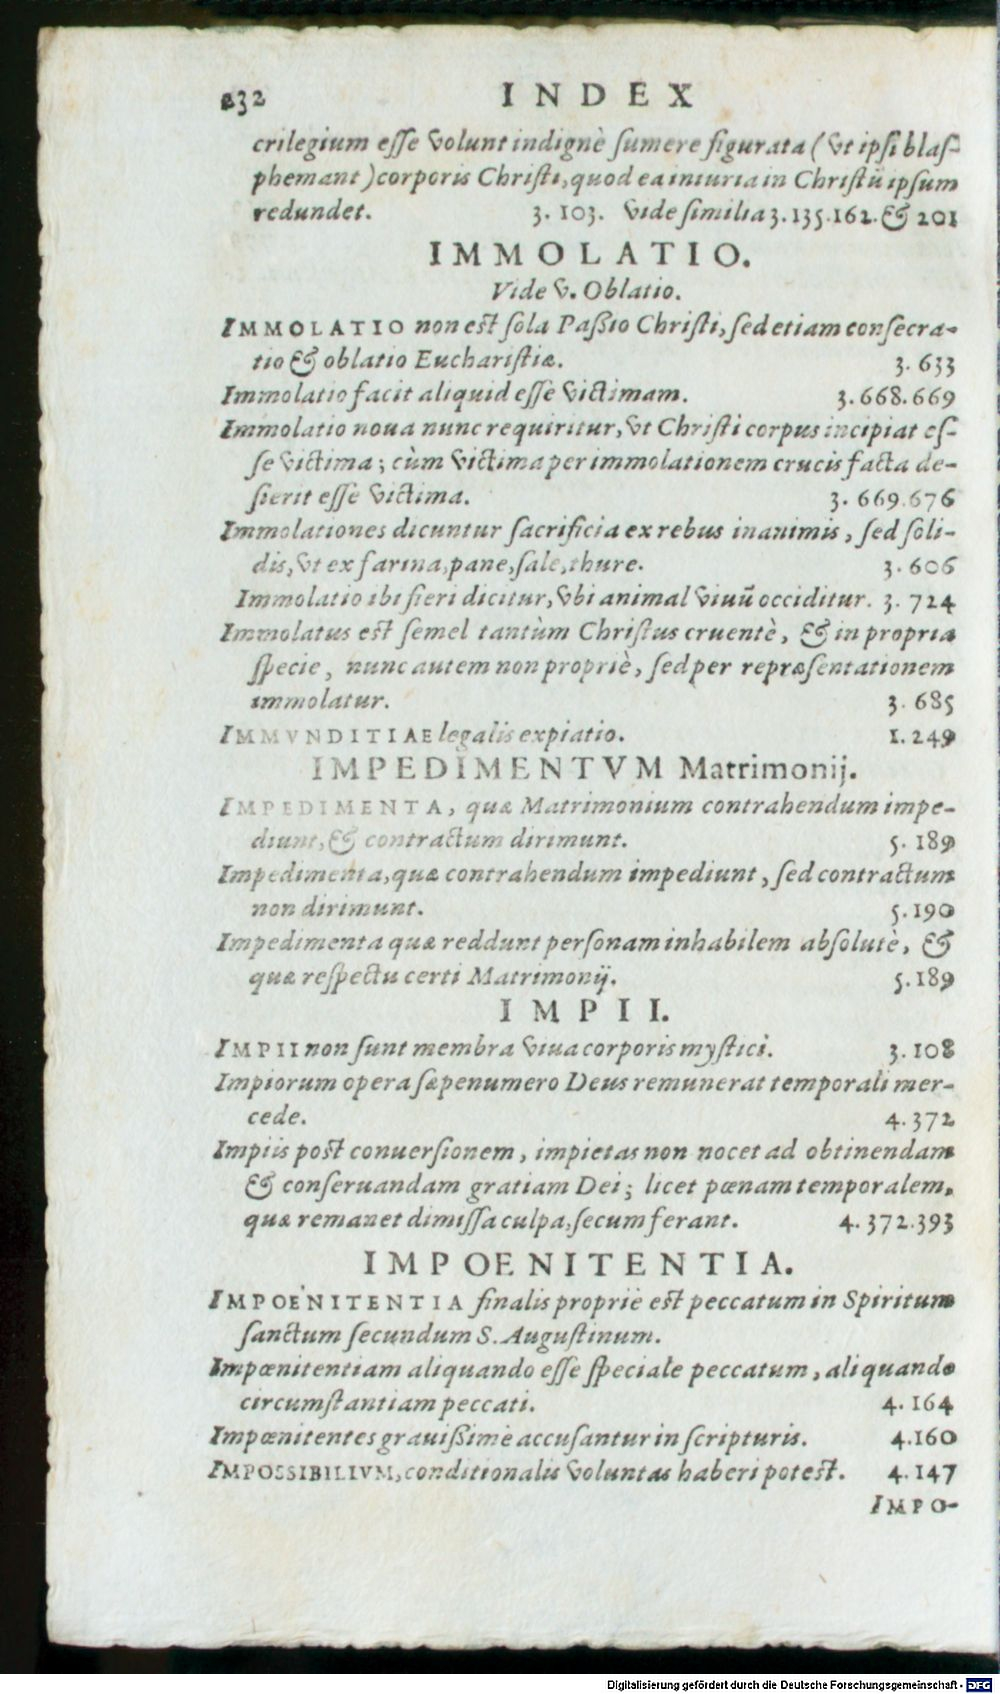 232 INDEX
crilegium esse volunt indignè sumere figurata (vt ipsi blas-
phemant) corporis Christi, quod ea iniuria in Christū ipsum
redundet. 3. 103. vide similia 3. 135. 162. & 201
IMMOLATIO.
Vide v. Oblatio.
IMMOLATIO non est sola Passio Christi, sed etiam consecra-
tio & oblatio Eucharistiæ. 3. 633
Immolatio facit aliquid esse victimam. 3. 668. 669
Immolatio noua nunc requiritur, vt Christi corpus incipiat es-
se victima; cùm victima per immolationem crucis facta de-
sierit esse victima. 3. 669. 676
Immolationes dicuntur sacrificia ex rebus inanimis, sed soli-
dis, vt ex farina, pane, sale, thure. 3. 606
Immolatio ibi fieri dicitur, vbi animal viuū occiditur. 3. 724
Immolatus est semel tantùm Christus cruentè, & in propria
specie, nunc autem non propriè, sed per repræsentationem
immolatur. 3. 685
IMMVNDITIAE legalis expiatio. 1. 249
IMPEDIMENTVM Matrimonij.
IMPEDIMENTA, quæ Matrimonium contrahendum impe-
diunt, & contractum dirimunt. 5. 189
Impedimenta, quæ contrahendum impediunt, sed contractum
non dirimunt. 5. 190
Impedimenta quæ reddunt personam inhabilem absolutè, &
quæ respectu certi Matrimonij. 5. 189
IMPII.
IMPII non sunt membra viua corporis mystici. 3. 108
Impiorum opera sæpenumero Deus remunerat temporali mer-
cede. 4. 372
Impiis post conuersionem, impietas non nocet ad obtinendam
& conseruandam gratiam Dei; licet pœnam temporalem,
quæ remanet dimissa culpa, secum ferant. 4. 372. 393
IMPOENITENTIA.
IMPOENITENTIA finalis propriè est peccatum in Spiritum
sanctum secundum S. Augustinum.
Impœnitentiam aliquando esse speciale peccatum, aliquando
circumstantiam peccati. 4. 164
Impœnitentes grauissimè accusantur in scripturis. 4. 160
IMPOSSIBILIVM, conditionalis voluntas haberi potest. 4. 147
IMPO-
Digitalisierung gefördert durch die Deutsche Forschungsgemeinschaft - DFG